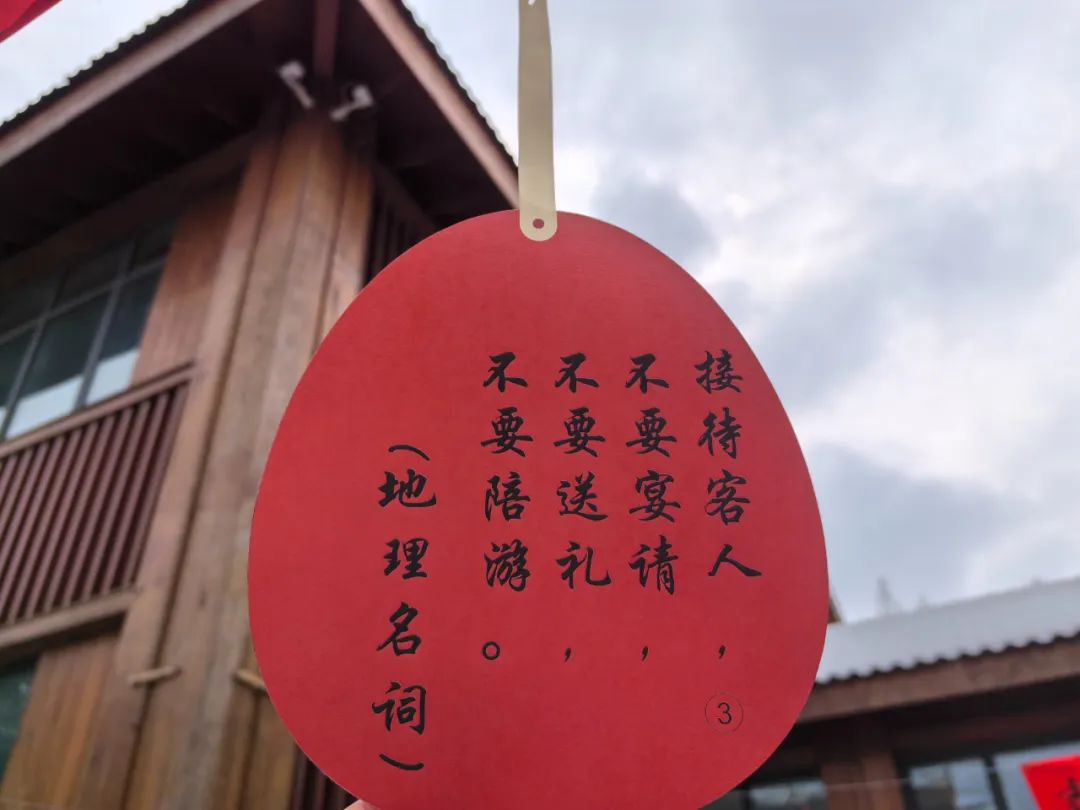 接待客人，③
不要宴请，
不要送礼，
不要陪游。
（地理名词）